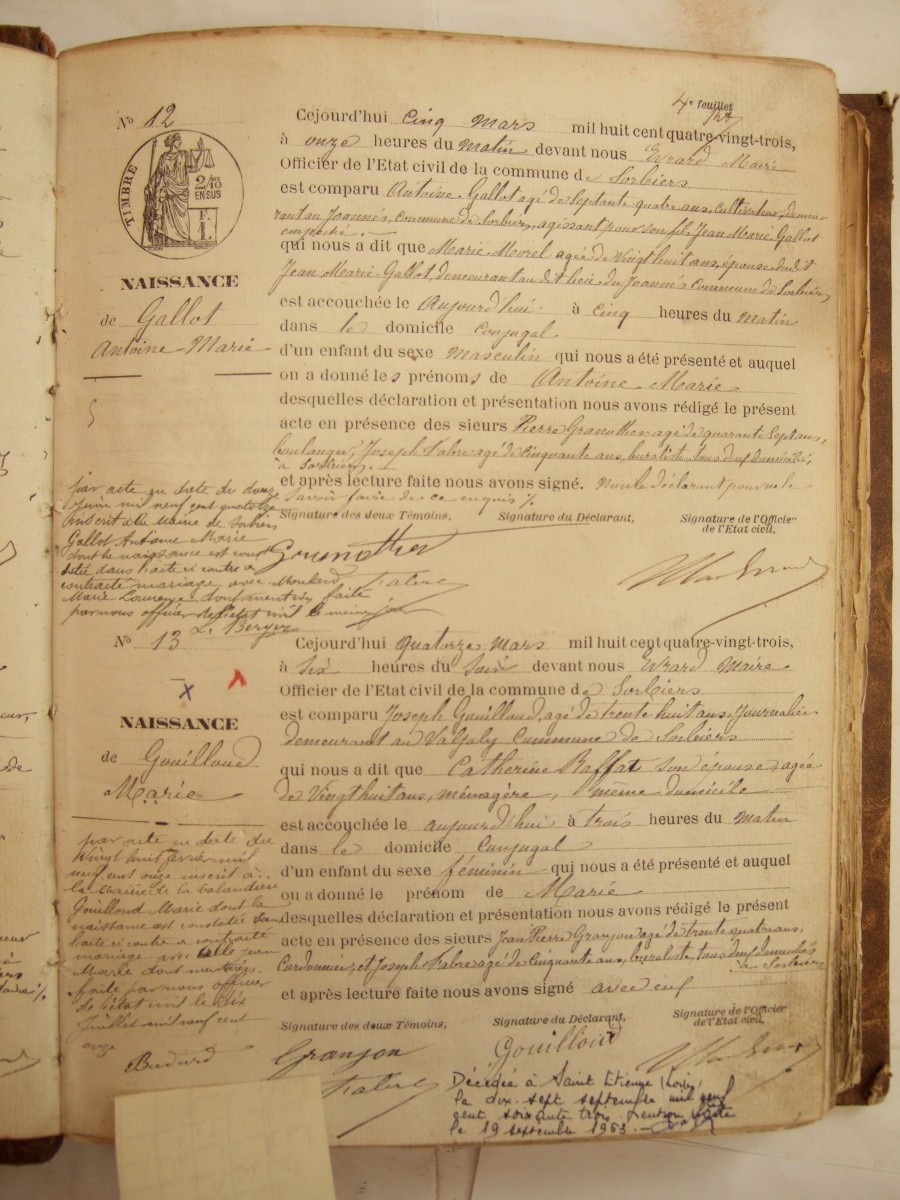 4e feuillet
No 12
TIMBRE
2/10
EN SUS
F.
1.
NAISSANCE
de Gallot
Antoine-Marie
Cejourd'hui cinq mars mil huit cent quatre-vingt-trois,
à onze heures du matin devant nous Evrard Maire
Officier de l'Etat civil de la commune de Sorbiers
est comparu Antoine Gallot agé de septante quatre ans, cultivateur, demeu-
rant au Joannés, commune de Sorbiers, agissant pour son fils Jean Marie Gallot
empêché
qui nous a dit que Marie Morel agée de vingt huit ans, épouse dudit
Jean Marie Gallot, demeurant au dit lieu du Joannés commune de Sorbiers
est accouchée le Aujourd'hui à cinq heures du matin
dans le domicile conjugal
d'un enfant du sexe masculin qui nous a été présenté et auquel
on a donné les prénoms de Antoine Marie
desquelles déclaration et présentation nous avons rédigé le présent
acte en présence des sieurs Pierre Granothier agé de quarante sept ans,
boulanger, Joseph Fabre agé de cinquante ans, buraliste, tous deux domiciliés
à Sorbiers.
et après lecture faite nous avons signé. non le déclarant pour ne le
savoir faire de ce enquis %
Signature des deux Témoins, Signature du Déclarant, Signature de l'Officier
de l'Etat civil,
par acte en date du douze
juin mil neuf cent quatorze
inscrit à la Mairie de Sorbiers
Gallot Antoine Marie
dont la naissance est cons-
tatée dans l'acte ci contre a
contracté mariage avec
Marie Laurence dont mention faite
par nous officier de l'état civil le même jour
L. Berger
Granothier
Fabre
No 13
NAISSANCE
de Gouilloud
Marie
Cejourd'hui quatorze mars mil huit cent quatre-vingt-trois,
à six heures du soir devant nous Evrard Maire
Officier de l'Etat civil de la commune de Sorbiers
est comparu Joseph Gouilloud, agé de trente huit ans, Journalier
demeurant au Valjaly Commune de Sorbiers
qui nous a dit que Catherine Raffat son épouse, agée
de Vingt huit ans, ménagère, même domicile
est accouchée le aujourd'hui à trois heures du matin
dans le domicile Conjugal
d'un enfant du sexe féminin qui nous a été présenté et auquel
on a donné le prénom de Marie
desquelles déclaration et présentation nous avons rédigé le présent
acte en présence des sieurs Jean Pierre Granjon agé de trente quatre ans,
Cordonnier, et Joseph Fabre agé de cinquante ans, buraliste tous deux domiciliés
à Sorbiers
et après lecture faite nous avons signé avec eux
Signature des deux Témoins, Signature du Déclarant, Signature de l'Officier
de l'Etat civil,
par acte en date du
vingt huit mil
neuf cent onze inscrit à
la mairie de la Talaudière
Gouilloud Marie dont la
naissance est constatée dans
l'acte ci contre a contracté
mariage avec
Marie dont mention
faite par nous officier
de l'état civil le dix
Juillet mil neuf cent
onze
Granjon
Fabre
Gouilloud
Décédée à Saint Etienne (Loire)
le dix-sept septembre mil neuf
cent soixante trois. Mention
le 19 septembre 1963.